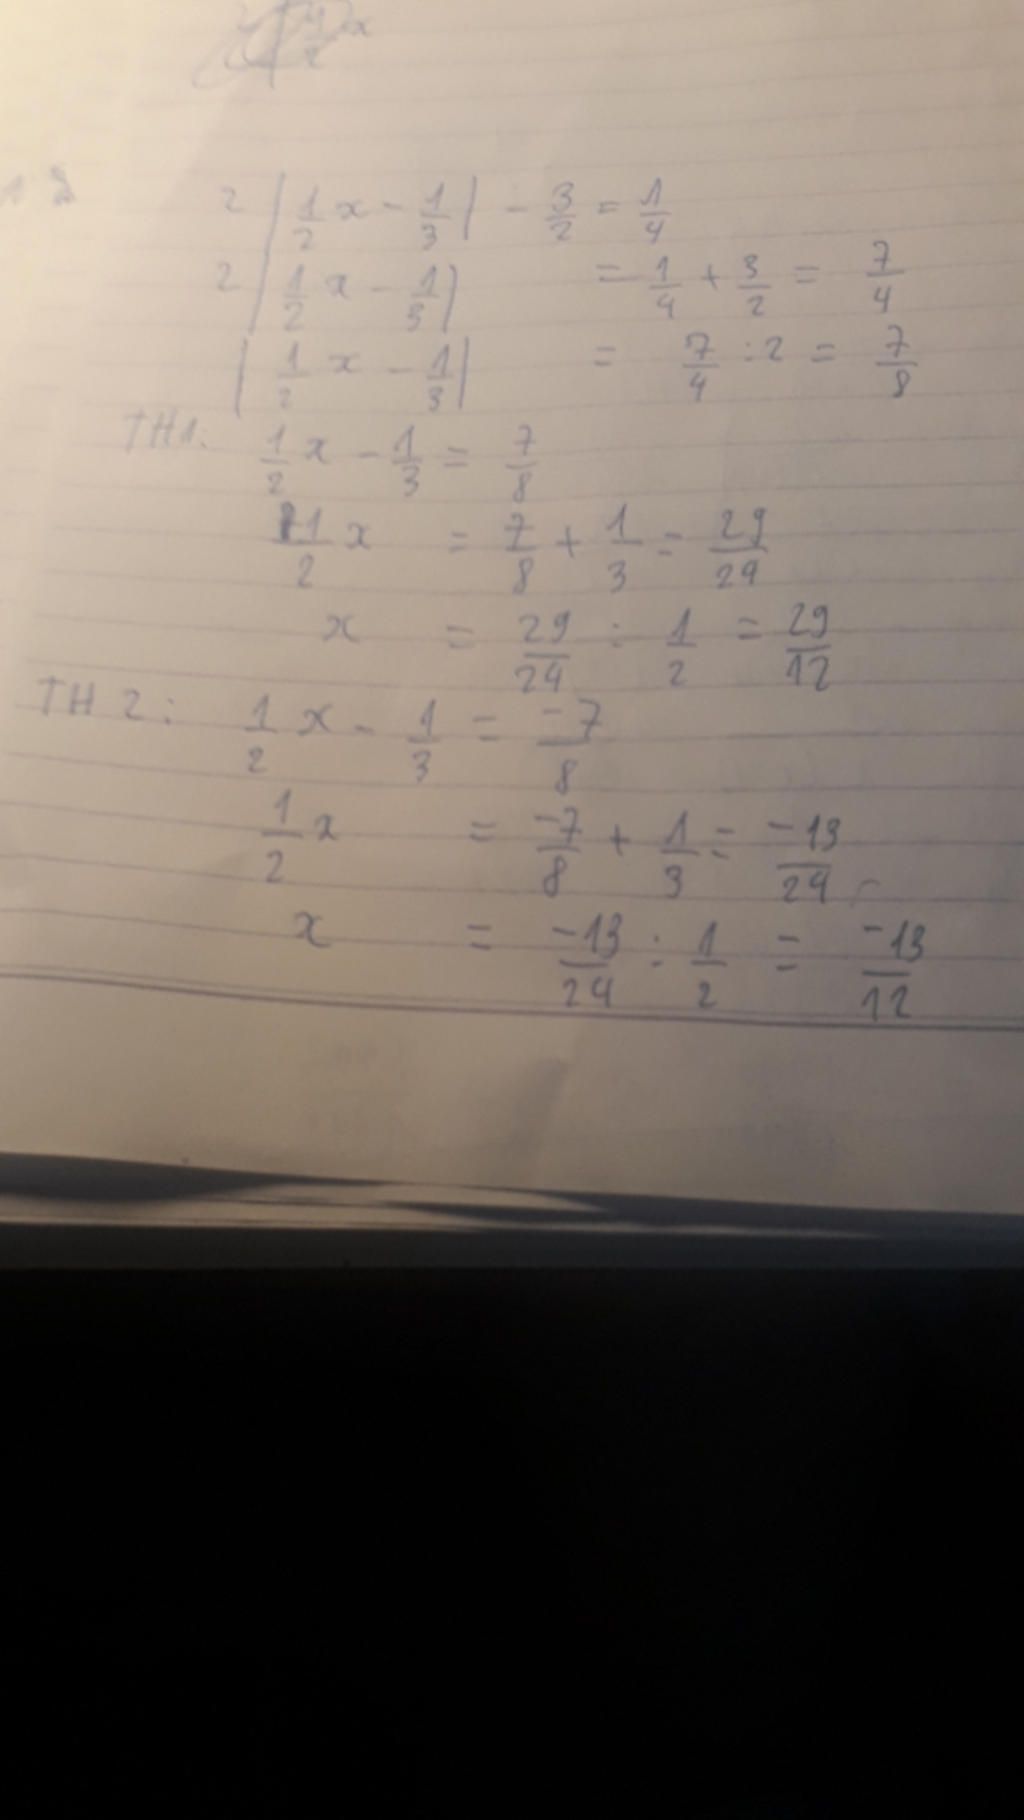 2 |1/2 x - 1/3| - 3/2 = 1/4
2 |1/2 x - 1/3| = 1/4 + 3/2 = 7/4
|1/2 x - 1/3| = 7/4 : 2 = 7/8
TH1: 1/2 x - 1/3 = 7/8
1/2 x = 7/8 + 1/3 = 29/24
x = 29/24 : 1/2 = 29/12
TH2: 1/2 x - 1/3 = -7/8
1/2 x = -7/8 + 1/3 = -13/24
x = -13/24 : 1/2 = -13/12